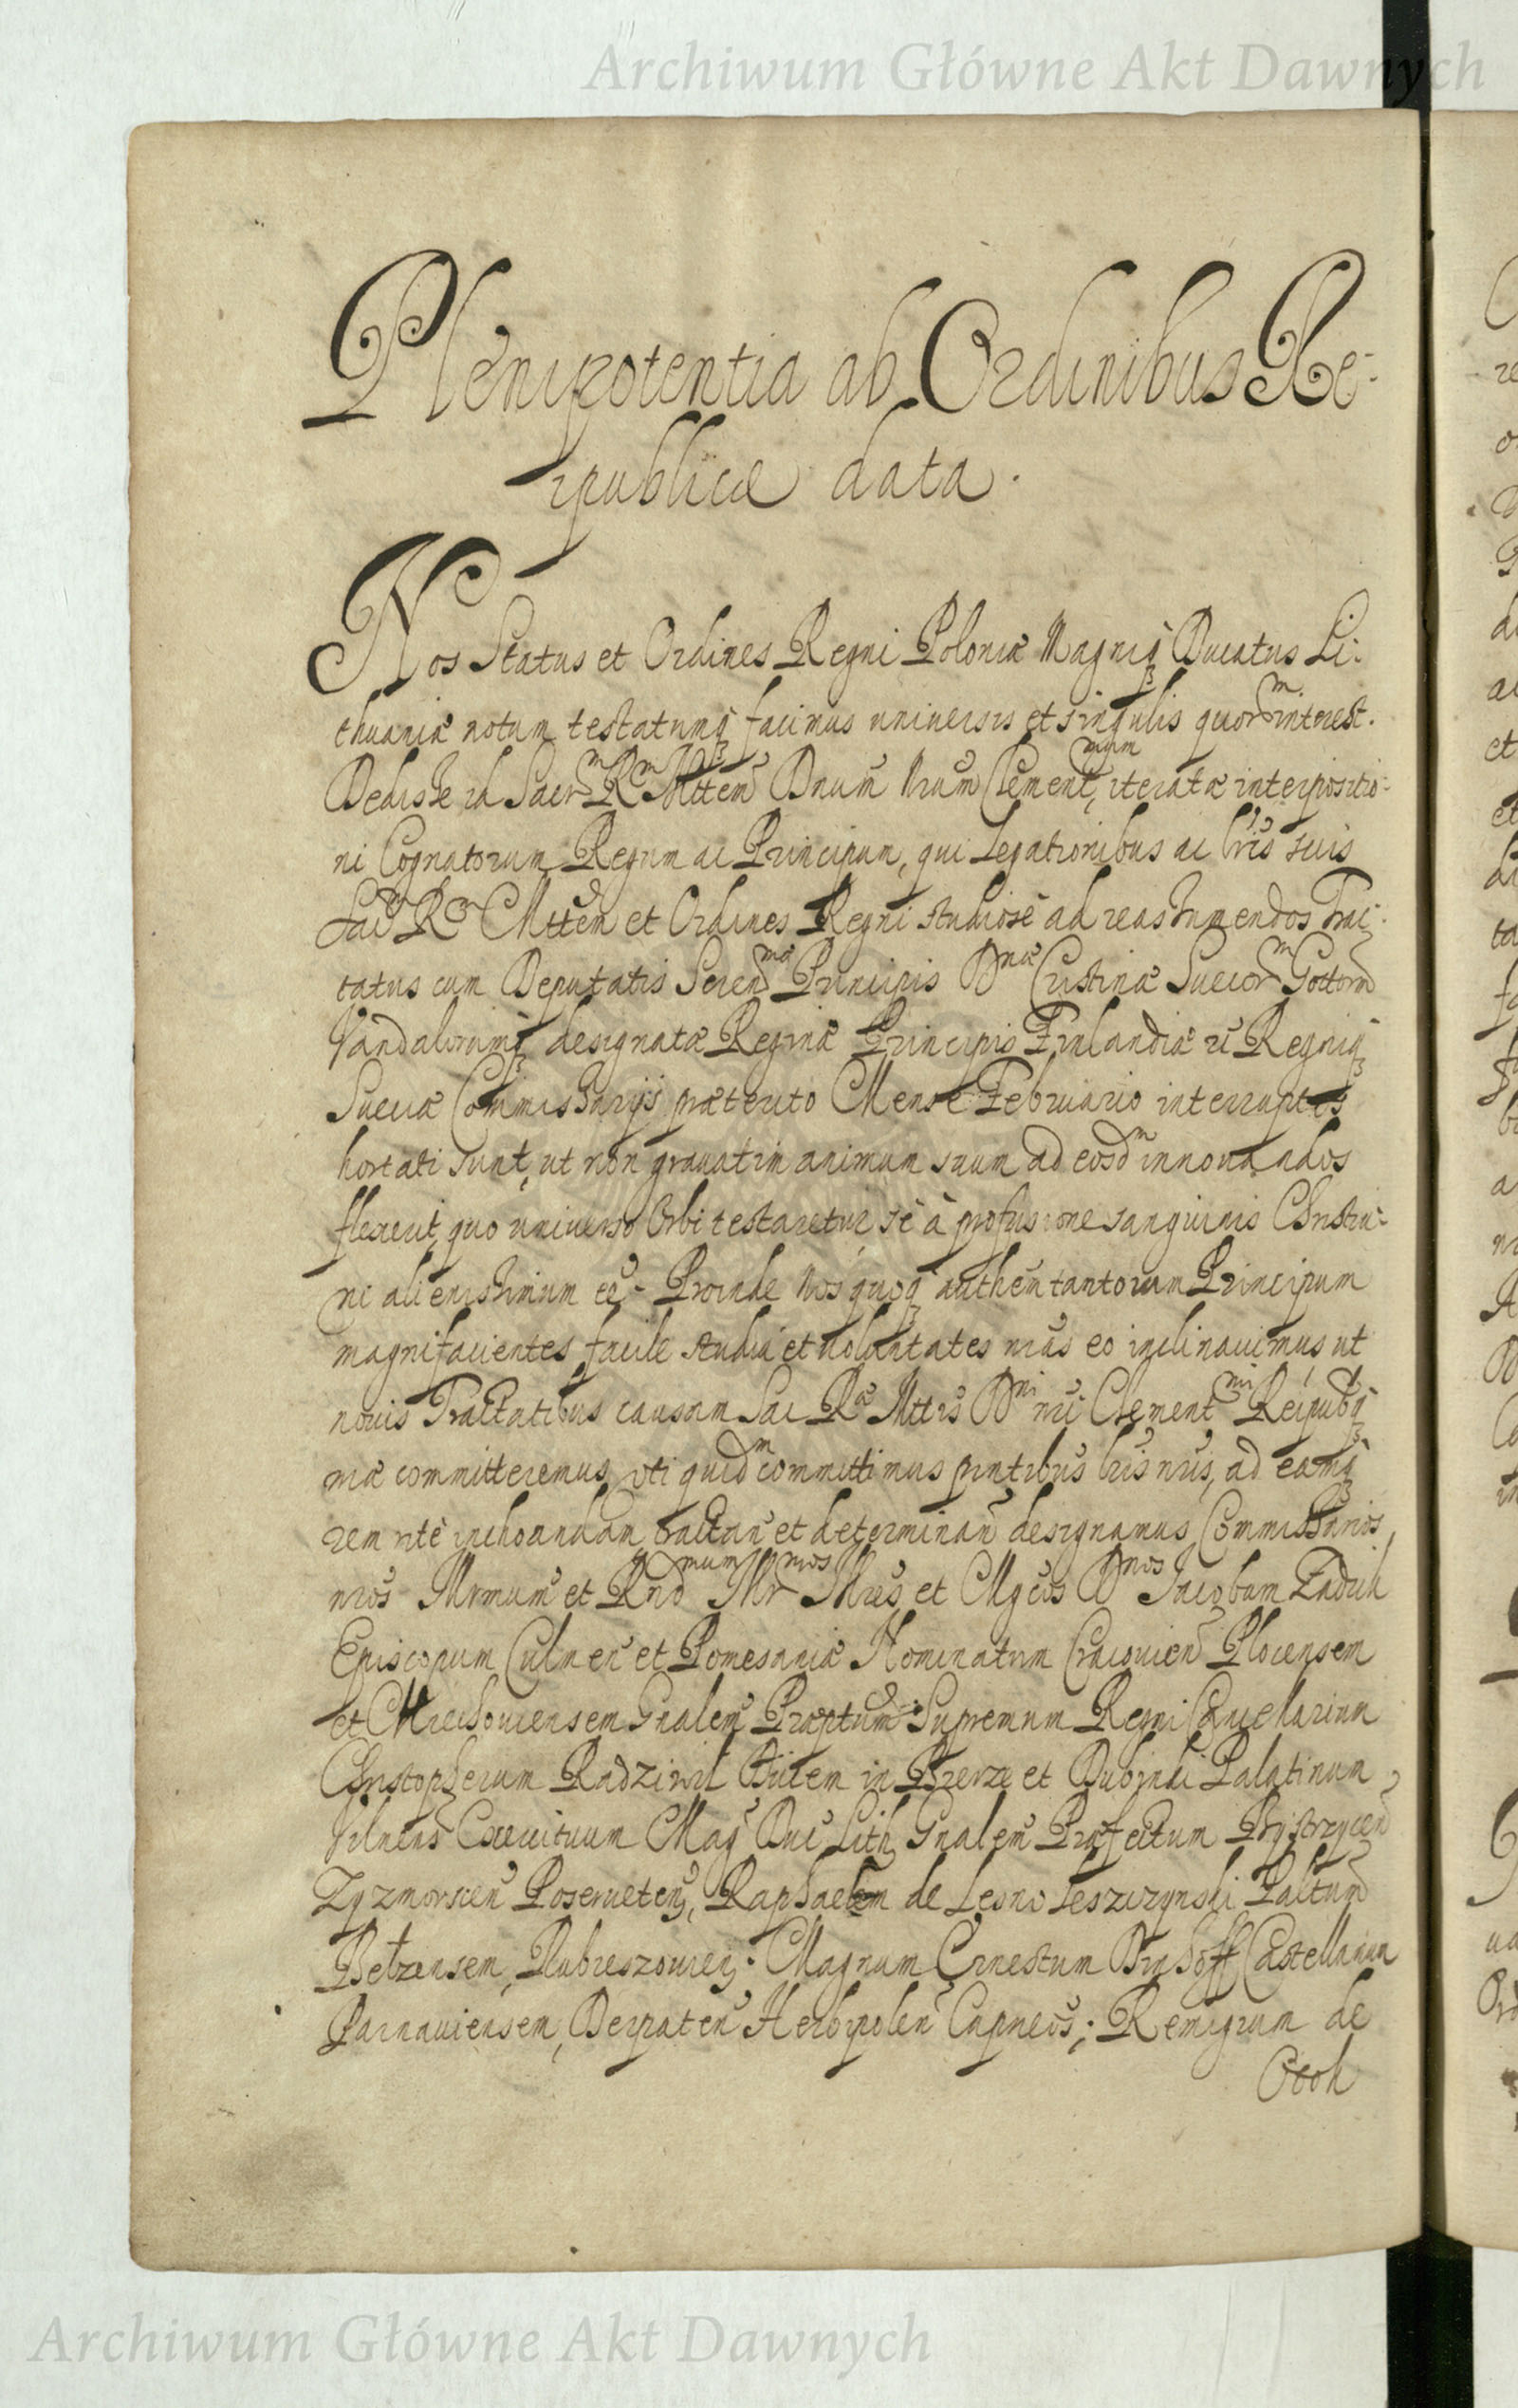 Archiwum Główne Akt Dawnych
Plenipotentia ab Ordinibus Re-
ipublicæ data.
Nos Status et Ordines Regni Poloniæ Magniq̃ Ducatus Li-
thuaniæ notum testatumq̃ facimus universis et singulis quorᵐ interest.
Dedisse id Sacrᵐ Rᵐ Mttem Dnum Nrum Clementᵐᵘᵐ, iteratæ interpositio-
ni Cognatorum Regum ac Principum, qui Legationibus ac lris suis
Sacᵐ Rᵐ Mttem et Ordines Regni studiosè ad reassumendos Trac-
tatus cum Deputatis Serenᵐᵃ Principis Dⁿᵃᵉ Cristinæ Suecorᵐ Gottorᵐ
Vandalorumq̃ designatæ Reginæ Principis Finlandiæ Regniq̃
Sueciæ Commissarijs præterito Mense Februario interruptos
hortati sunt, ut non gravatim animum suum ad eosdᵐ innovandos
flexerit, quo universo Orbi testaretur sè à profusione sanguinis Christia-
ni alienissimum eē. Proinde Nos quoq̃ authen tantorum Principum
magnifacientes facile studia et voluntates nras eo inclinavimus ut
novis Tractatibus causam Sac Rᵃᵉ Mttis Dⁿⁱ nri Clementᵐⁱ Reipubq̃
næ committeremus, uti quidᵐ committimus pntibus lris nris, ad eamq̃
rem ritè inchoandam tractan et determinan designamus Commissarios
nros Illrmum et Rndᵐᵘᵐ Illrᵐᵒˢ Illres et Mgcos Dⁿᵒˢ Jacobum Zadzik
Episcopum Culmen et Pomesaniæ Nominatum Cracovien Plocensem
et Miechoviensem Gnalem Præptum Supremum Regni Cancellarium
Christopherum Radziwil Ducem in Bierze et Dubinki Palatinum
Vilnens Exercituum Mag Duc Lith Gnalem Præfectum Bystrzycen
Zyzmorscen Poserveten, Raphaelem de Lesno Leszczynski Paltum
Belzensem, Rubieszovien. Magnum Ernestum Dnhoff Castellanum
Parnaviensem, Derpaten Capneos; Remigium de
Otok
Archiwum Główne Akt Dawnych